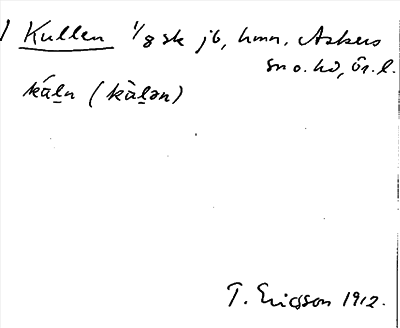 Kullen 1/8 sk jb, hmn. Askers
sn o. hd, Ör. l.
kål̠n (kàl̠ən)
T. Ericsson 1912.